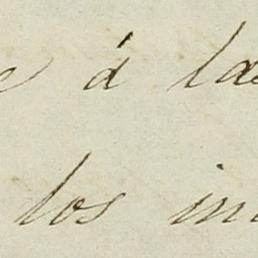 á la
los in